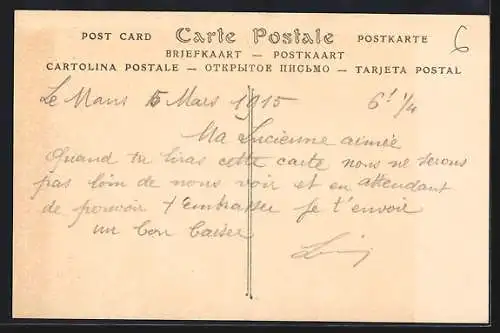 POST CARD Carte Postale POSTKARTE
BRIEFKAART — POSTKAART
CARTOLINA POSTALE — ОТКРЫТОЕ ПИСЬМО — TARJETA POSTAL
6
Le Mans 5 Mars 1915 6f 1/4
Ma Lucienne aimée
Quand tu liras cette carte nous ne serons
pas loin de nous voir et en attendant
de pouvoir t'embrasser je t'envoie
un bon baiser